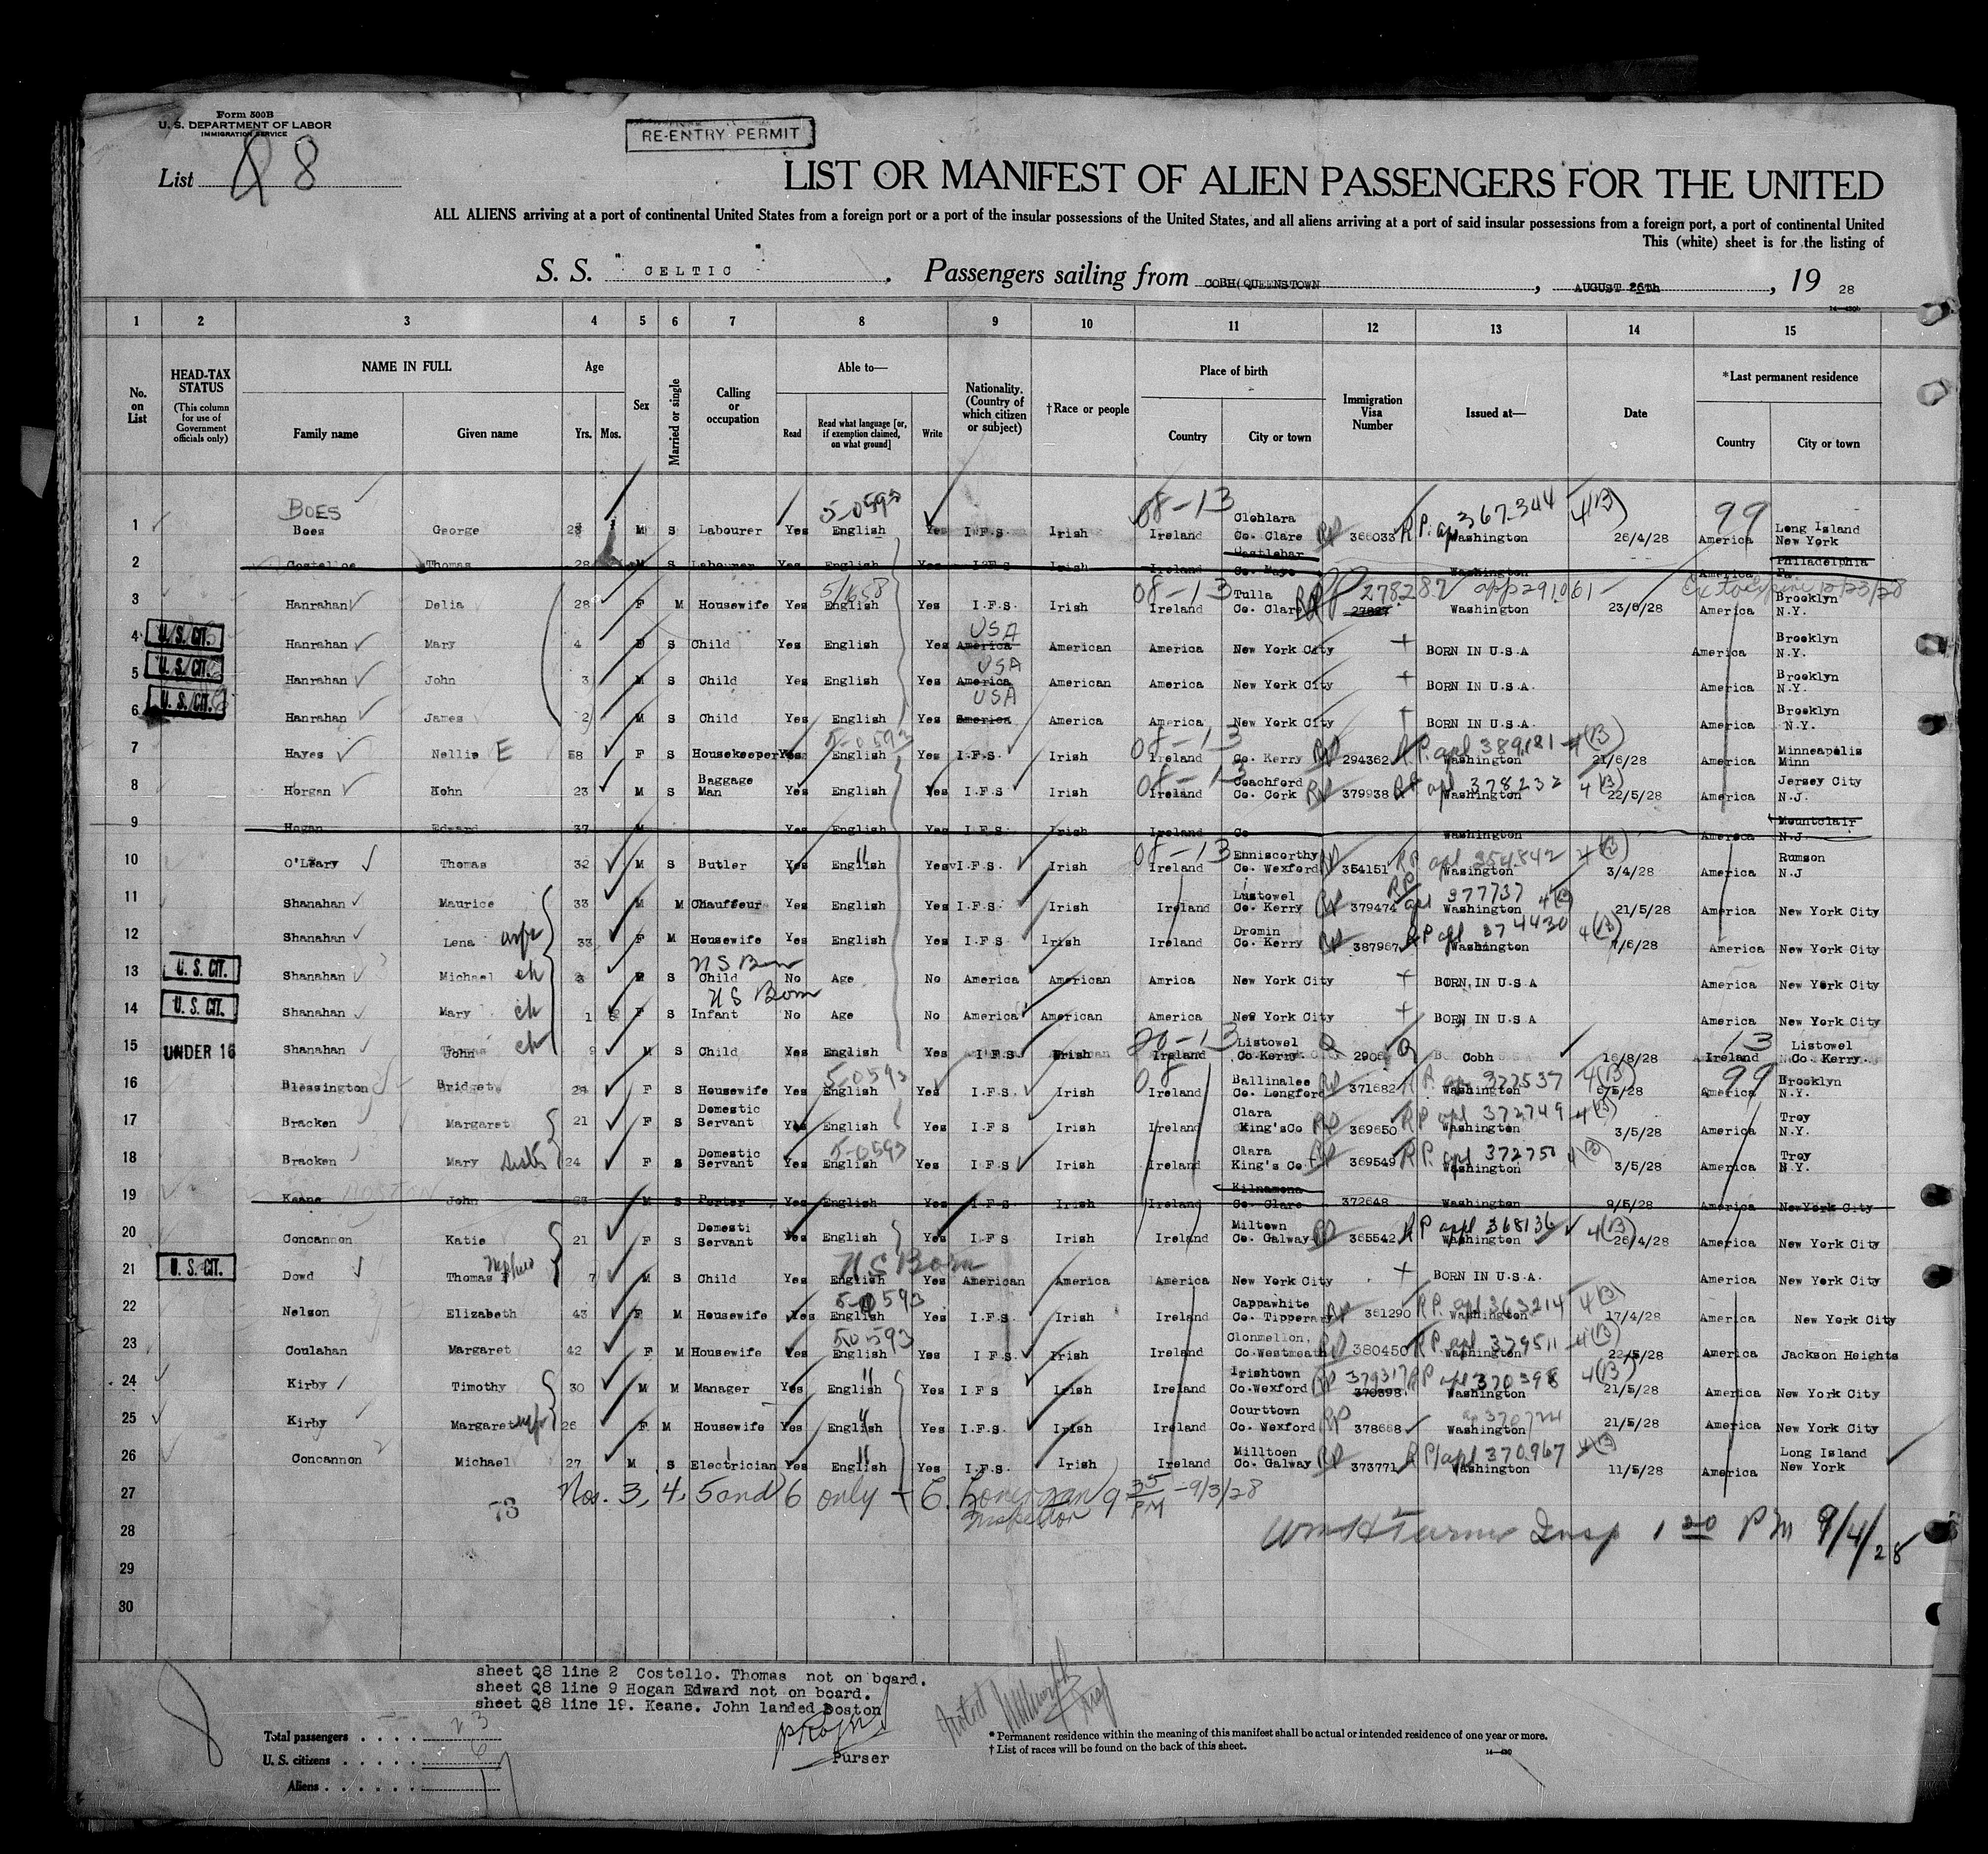 Form 500B
U. S. DEPARTMENT OF LABOR
IMMIGRATION SERVICE
RE-ENTRY PERMIT
List Q 8
LIST OR MANIFEST OF ALIEN PASSENGERS FOR THE UNITED
ALL ALIENS arriving at a port of continental United States from a foreign port or a port of the insular possessions of the United States, and all aliens arriving at a port of said insular possessions from a foreign port, a port of continental United
This (white) sheet is for the listing of
S. S. " CELTIC " . Passengers sailing from COBH(QUEENSTOWN , AUGUST 26th , 19 28
1 2 3 4 5 6 7 8 9 10 11 12 13 14 15
No. on List
HEAD-TAX STATUS (This column for use of Government officials only)
NAME IN FULL
Family name Given name
Age
Yrs. Mos.
Sex
Married or single
Calling or occupation
Able to—
Read Read what language [or, if exemption claimed, on what ground] Write
Nationality. (Country of which citizen or subject)
†Race or people
Place of birth
Country City or town
Immigration Visa Number
Issued at—
Date
*Last permanent residence
Country City or town
BOES 5-0593 08-13 Clohlara RP. apl 367.344 4(B) 99 Long Island
1 Boes George M S Labourer Yes English Yes I.F.S. Irish Ireland Co. Clare RP 366033 Washington 26/4/28 America New York
Castlebar Philadelphia
2 Costelloe Thomas 28 M S Labourer Yes English Yes I.F.S Irish Ireland Co. Mayo Washington America Pa.
08-13 Tulla RP 278282 app291061 Brooklyn
3 Hanrahan Delia 28 F M Housewife Yes English Yes I.F.S. Irish Ireland Co. Clare 27827 Washington 23/6/28 America N.Y.
U.S. CIT. USA Brooklyn
4 Hanrahan Mary 4 S Child Yes English Yes America American America New York City BORN IN U.S.A America N.Y.
U.S. CIT. USA Brooklyn
5 Hanrahan John 3 M S Child Yes English Yes America American America New York City BORN IN U.S.A. America N.Y.
U.S. CIT. USA Brooklyn
6 Hanrahan James 2 M S Child Yes English Yes America America America New York City BORN IN U.S.A. America N.Y.
5-0593 08-13 RP. apl 389,181 4(B) Minneapolis
7 Hayes Nellie E 58 F S Housekeeper Yes English Yes I.F.S. Irish Ireland Co. Kerry RP 294362 Washington 21/6/28 America Minn
Baggage 08-13 Coachford RP apl 378232 4(B) Jersey City
8 Horgan John 23 M S Man Yes English Yes I.F.S Irish Ireland Co. Cork RP 379938 Washington 22/5/28 America N.J.
Mountclair
9 Hogan Edward 37 M Yes English Yes I.F.S Irish Ireland Co Washington America N.J
" 08-13 Enniscorthy RP apl 354842 4(B) Rumson
10 O'Leary Thomas 32 M S Butler Yes English Yes I.F.S. Irish Ireland Co. Wexford RP 354151 Wasington 3/4/28 America N.J
Lustowel RP apl 377737 4(B)
11 Shanahan Maurice 33 M M Chauffeur Yes English Yes I.F.S. Irish Ireland Co. Kerry RP 379474 Washington 21/5/28 America New York City
Dromin RP apl 374430 4(B)
12 Shanahan Lena wife 33 F M Housewife Yes English Yes I.F.S Irish Ireland Co. Kerry RP 387967 Washington /6/28 America New York City
U. S. CIT. U S Born
13 Shanahan Michael ch M S Child No Age No America American Amrica New York City BORN IN U.S A America New York City
U. S. CIT. U S Born
14 Shanahan Mary ch 1 F S Infant No Age No America American America New York City BORN IN U S A America New York City
08-13 Listowel Q 13 Listowel
15 UNDER 16 Shanahan John ch 9 M S Child Yes English Yes I.F.S. Irish Ireland Co Kerry Q Cobh 16/8/28 Ireland Co. Kerry.
5-0593 Ballinalee RP. ap 372537 4(B) 99 Brooklyn
16 Blessington Bridget F S Housewife Yes English Yes I.F.S. Irish Ireland Co. Longford RP 371682 Washington 5/5/28 America N.Y.
Domestic Clara RP apl 372749 4(B) Troy
17 Bracken Margaret 21 F S Servant Yes English Yes I.F.S Irish Ireland King'sCo RP 369650 Washington 3/5/28 America N.Y.
Domestic 5-0593 Clara RP. apl 372750 4(B) Troy
18 Bracken Mary 24 F S Servant Yes English Yes I.F.S Irish Ireland King's Co. RP 369549 Washington 3/5/28 America N.Y.
Kilnamona
19 Keane John 23 M S Porter Yes English Yes I.F.S Irish Ireland Co. Clare 372648 Washington 9/5/28 America NewYork City
Domesti Miltown RP apl 368136 4(B)
20 Concannon Katie 21 F S Servant Yes English Yes I.F.S Irish Ireland Co. Galway RP 365542 Washington 26/4/28 America New York City
U. S. CIT. Nephew U S Born
21 Dowd Thomas 7 M S Child Yes English Yes American America America New York City BORN IN U.S.A. America New York City
5-0593 Cappawhite RP. apl 363214 4(B)
22 Nelson Elizabeth 43 F M Housewife Yes English Yes I.F.S. Irish Ireland Co. Tipperary RP 361290 Washington 17/4/28 America New York City
5-0593 Clonmellon, RP. apl 379511 4(B)
23 Coulahan Margaret 42 F M Housewife Yes English Yes I F S. Irish Ireland Co.Westmeath RP 380450 Washington 22/5/28 America Jackson Heights
" Irishtown RP 379317 RP apl 370398 4(B)
24 Kirby Timothy 30 M M Manager Yes English Yes I F S Irish Ireland Co.Wexford 370398 Washington 21/5/28 America New York City
" Courttown RP ap 370724
25 Kirby Margaret wife 26 F M Housewife Yes English Yes I.F.S. Irish Ireland Co. Wexford 378668 Washington 21/5/28 America New York City
" Milltoen RP apl 370.967 4(B) Long Island
26 Concannon Michael 27 M S Electrician Yes English Yes I.F.S. Irish Ireland Co. Galway RP 373771 Washington 11/5/28 America New York
27 Nos. 3, 4, 5 and 6 only 9 35 PM - 9/3/28
73 Inspector
28 Wm H Turner Insp 1 20 P M 9/4/28
29
30
sheet Q8 line 2 Costello. Thomas not on board.
sheet Q8 line 9 Hogan Edward not on board.
sheet Q8 line 19. Keane. John landed Boston
Purser
Total passengers . . . . 23
U. S. citizens . . . . . 6
Aliens . . . . . . 17
* Permanent residence within the meaning of this manifest shall be actual or intended residence of one year or more.
† List of races will be found on the back of this sheet.